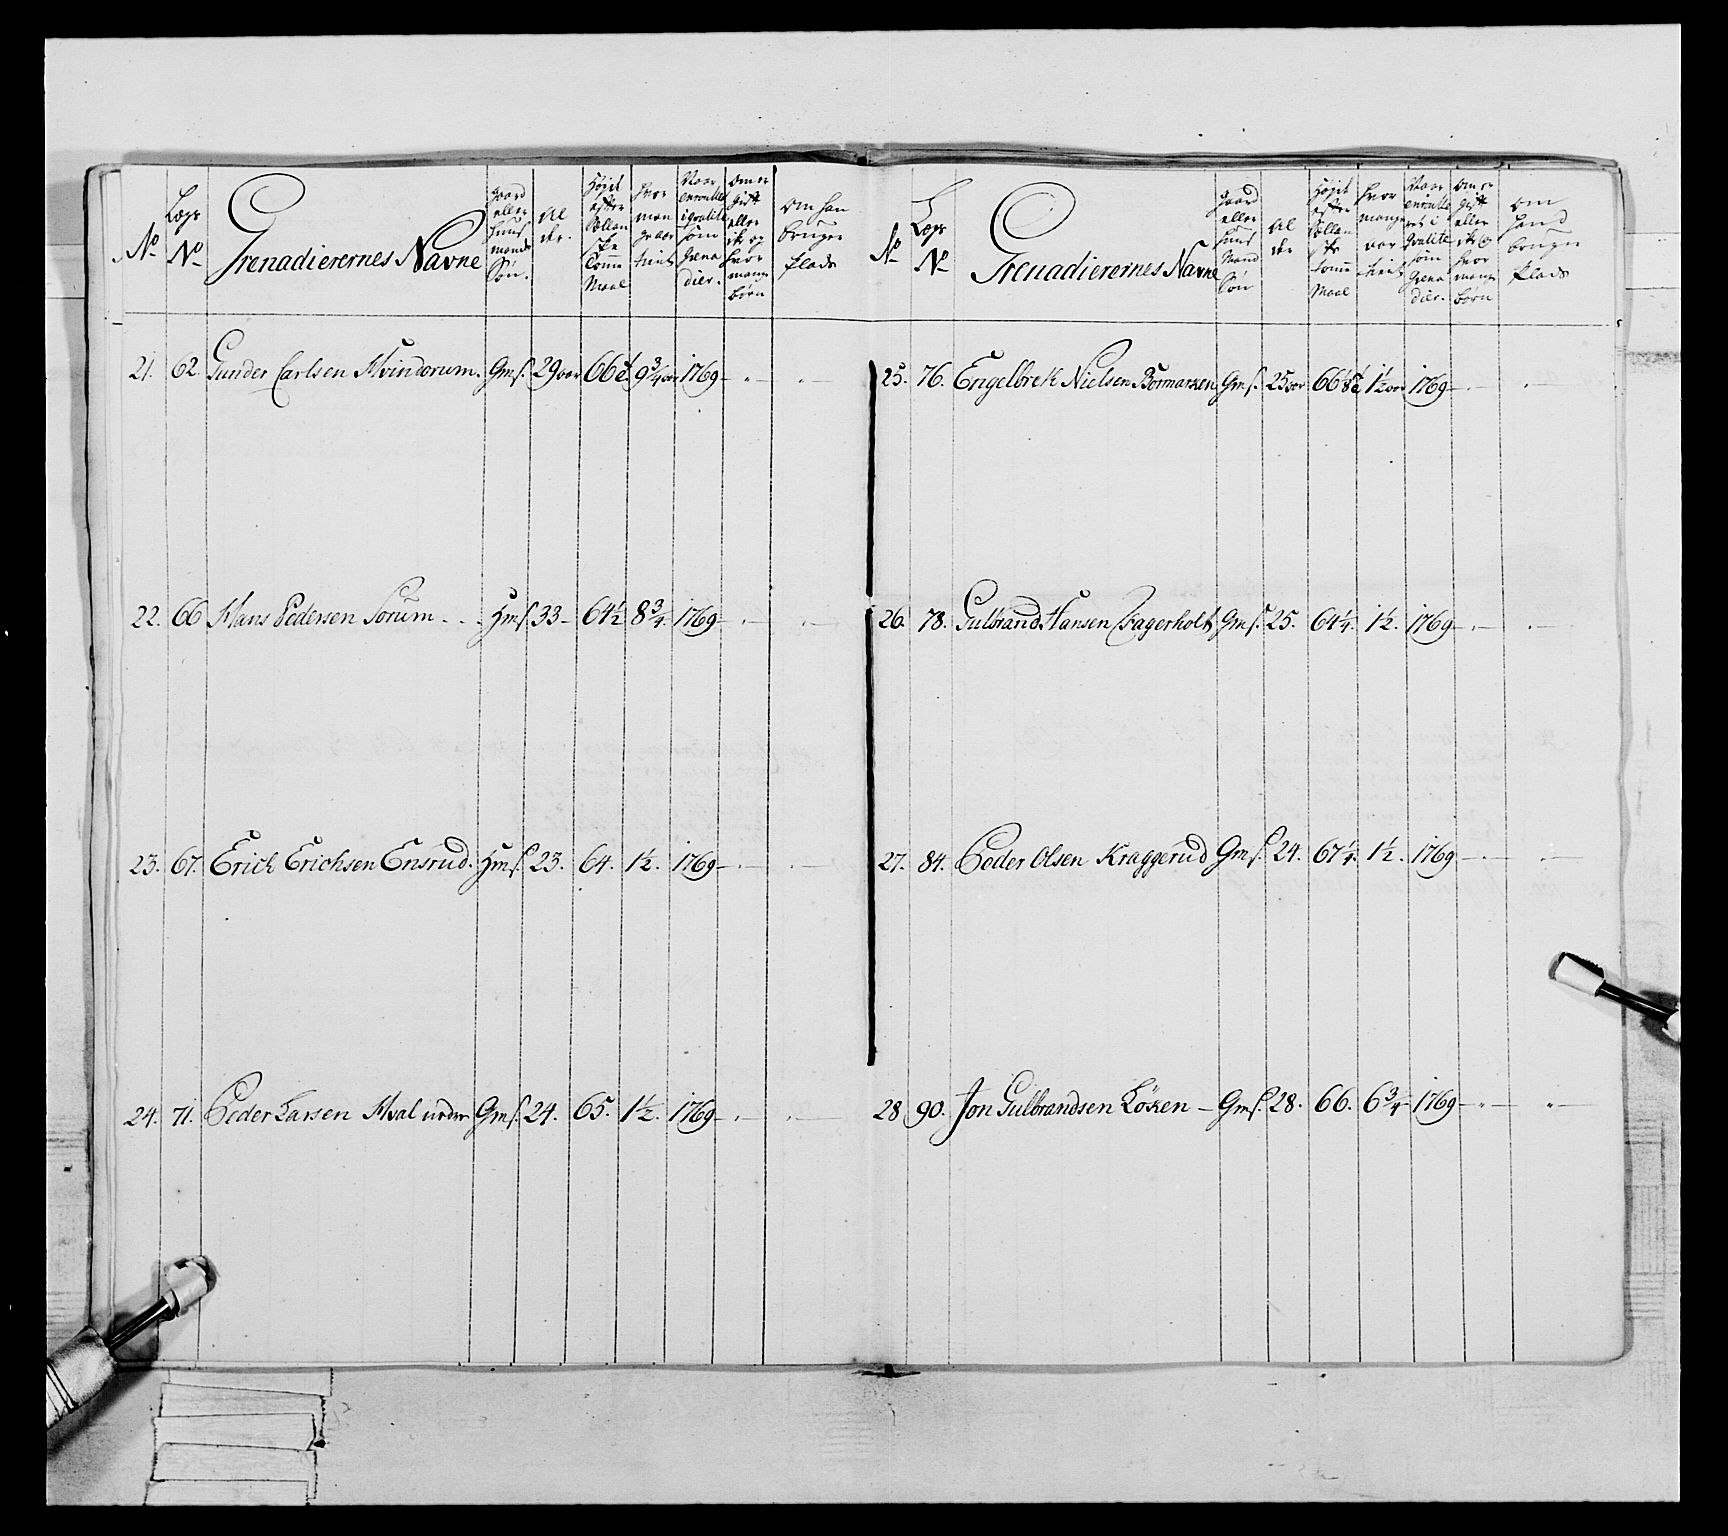 No
Lægs No
Grenadierernes Navne
Gaard eller Huus mands Søn.
Al der.
Højde efter Sollandske Tomme Maal
hvor mange aar tient
Naar enroulleret i Qvalite som Grenadier.
Om er gift eller ik og hvor mange børn
Om han bruger Plads
21. 62. Gunder Carlsen Hvindorum. Gmſ. 29 aar 66 9 3/4 aar 1769 — " — " —
22. 66 Hans Pedersen Sorum . . . Hmſ. 33 – 64 1/2 8 3/4. 1769 — " — " —
23. 67. Erich Erichsen Ensrud. Hmſ. 23. 64. 1 1/2. 1769 — " — " —
24. 71. Peder Larsen Hval under Gmſ. 24. 65. 1 1/2. 1769 — " — " —
No
Lægs No
Grenadierernes Navne
Gaard eller Huus Mand Søn
Al der
Højde efter Sollandske Tomme Maal
hvor mange aar tient
Naar enroulleret i Qvalite som Grenadier.
Om er gift eller ik og hvor mange børn
Om hand bruger Plads
25. 76. Engelbrek Nielsen Börmarken Gmſ. 25 aar 66 1 1/2 aar 1769 — " — " —
26. 78. Gulbrand Hansen Fagerholt Gmſ. 25. 64 1/4. 1 1/2. 1769 — " — " —
27. 84. Peder Olsen Kraggerud Gmſ. 24. 67 1/4. 1 1/2. 1769 — " — " —
28 90. Jon Gulbrandsen Lösken — Gmſ. 28. 66. 6 3/4 – 1769 — " — " —